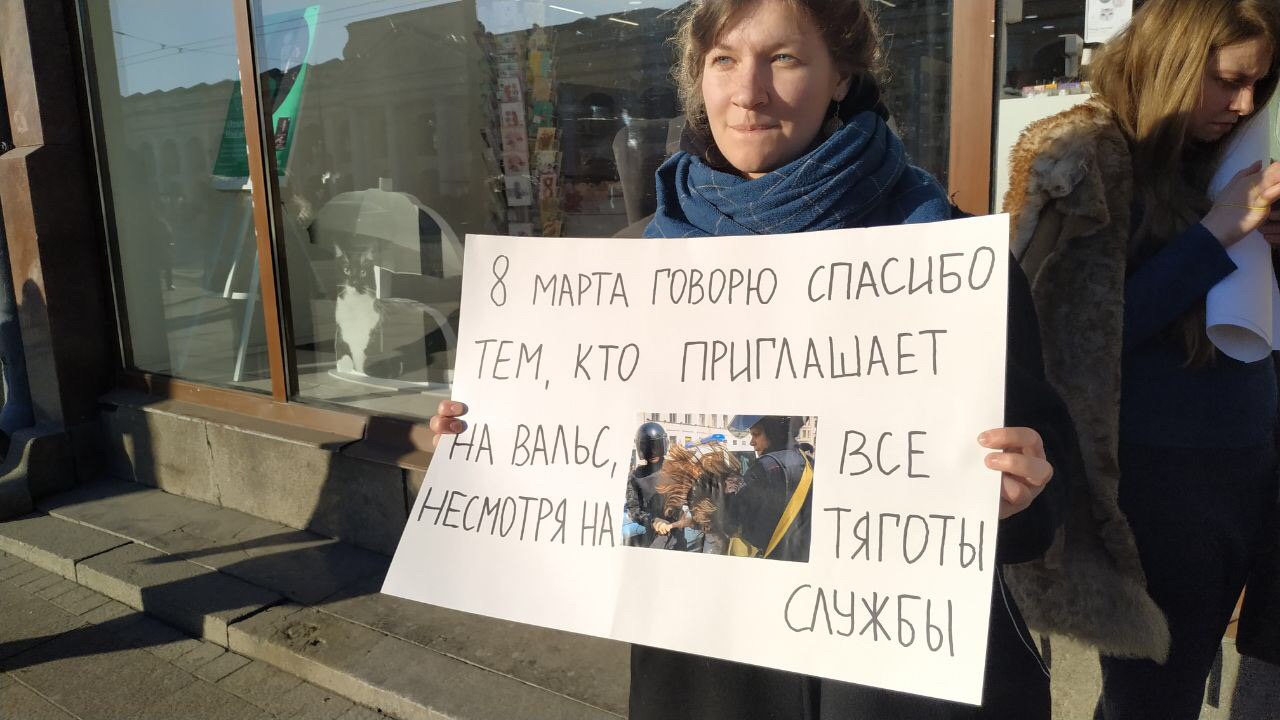 8 МАРТА ГОВОРЮ СПАСИБО
ТЕМ, КТО ПРИГЛАШАЕТ
НА ВАЛЬС, ВСЕ
НЕСМОТРЯ НА ТЯГОТЫ
СЛУЖБЫ